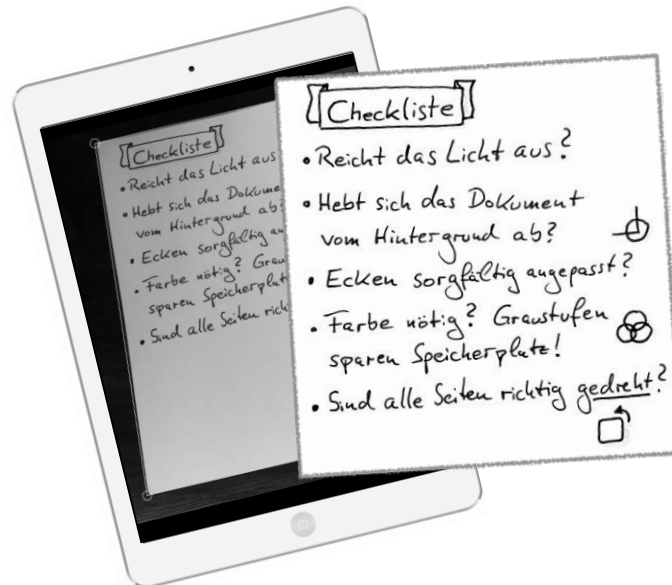 Checkliste
• Reicht das Licht aus
• Hebt sich das Dokume
vom Hintergrund ab?
• Ecken sorgfältig an
• Farbe nötig? Grau
sparen Speicherplatz
• Sind alle Seiten richt
Checkliste
• Reicht das Licht aus?
• Hebt sich das Dokument
vom Hintergrund ab?
• Ecken sorgfältig angepasst?
• Farbe nötig? Graustufen
sparen Speicherplatz!
• Sind alle Seiten richtig gedreht?